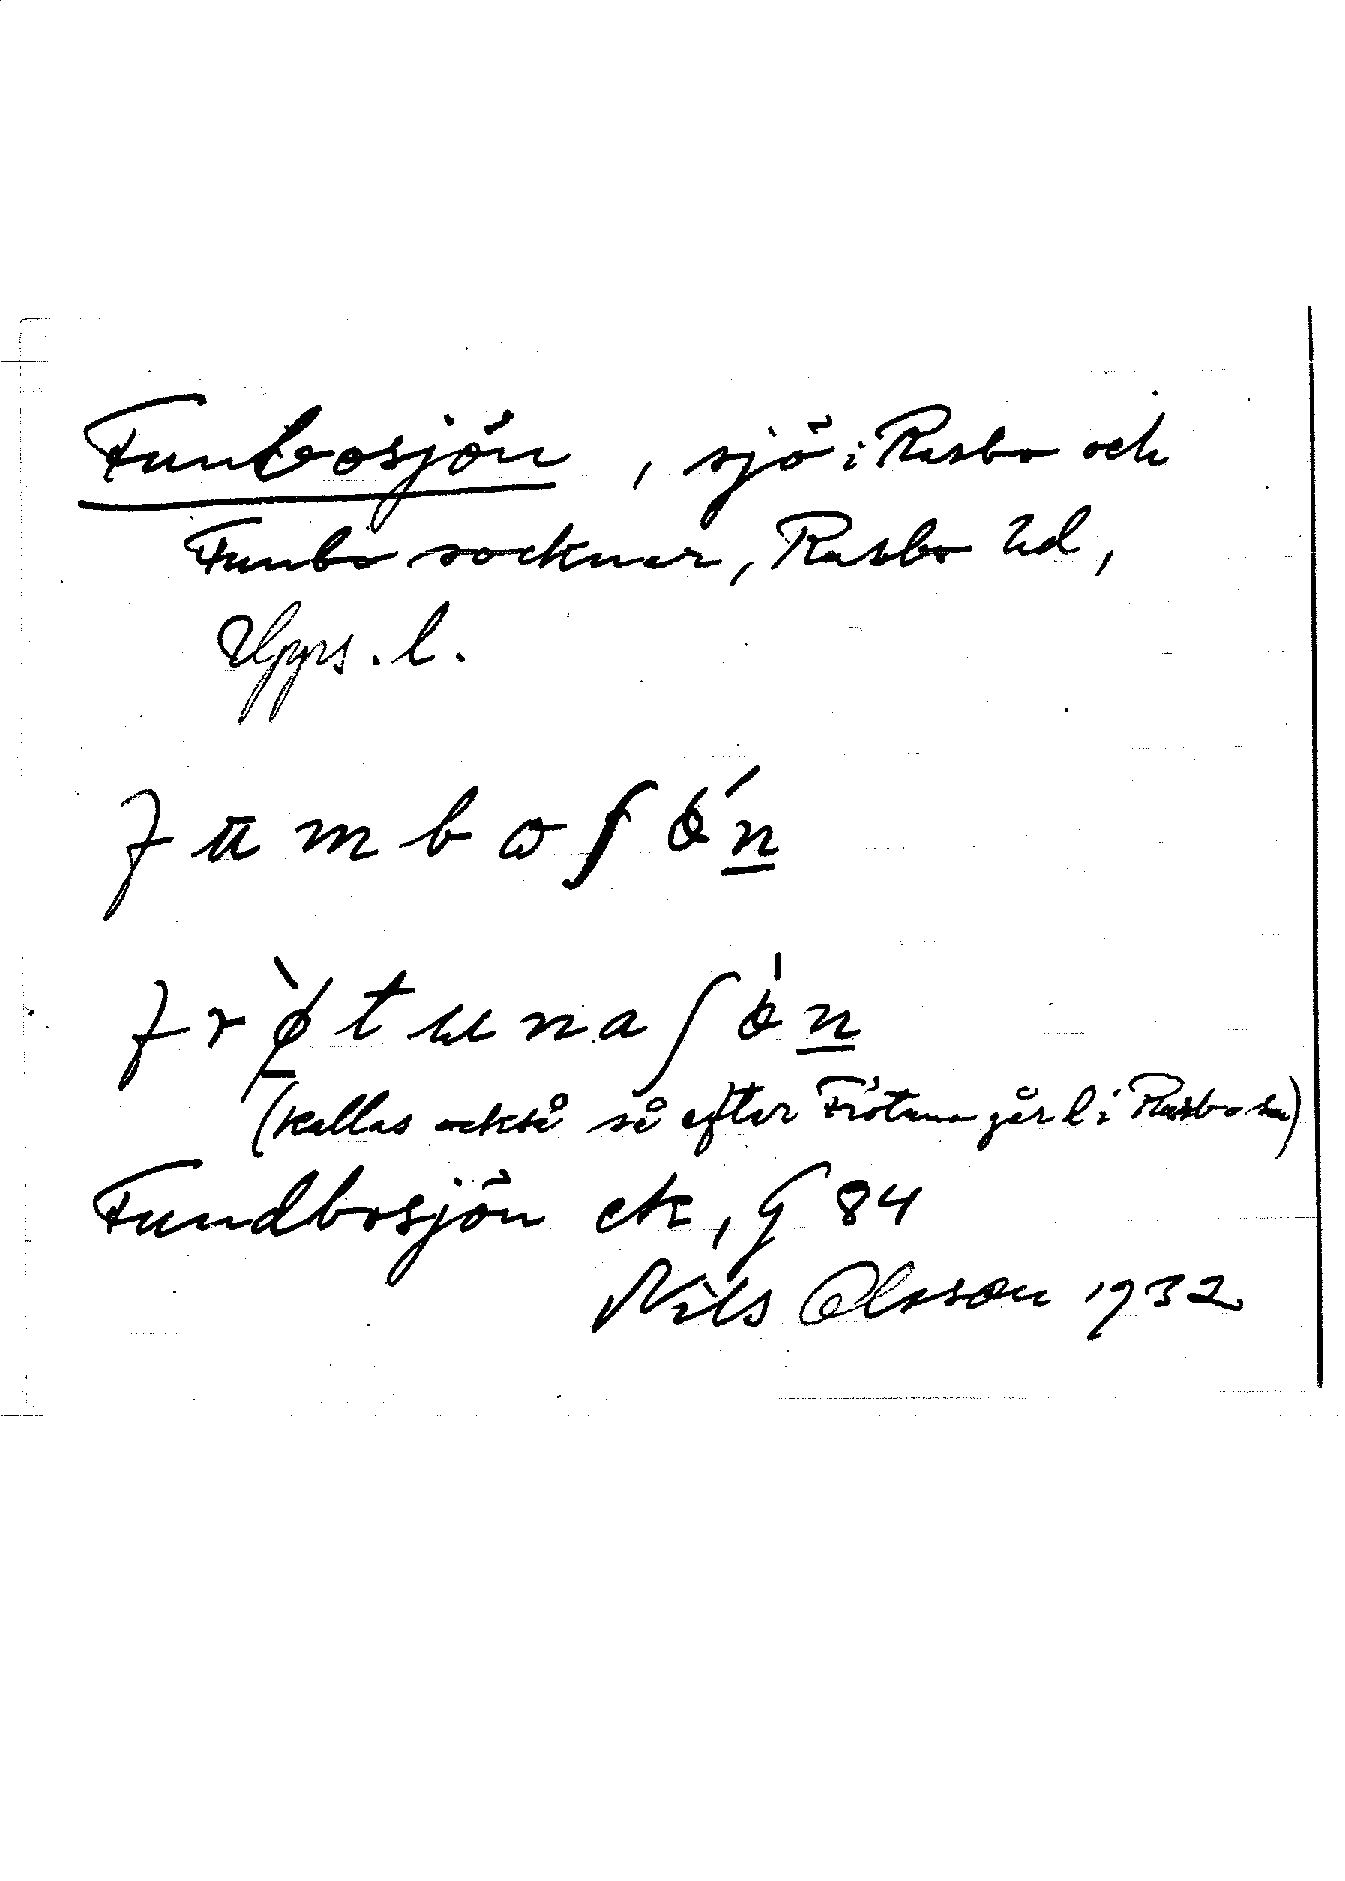 Funbosjön, sjö i Rasbo och
Funbo socknar, Rasbo hd,
Upps. l.
fūmboʃǿn
frø̀tunaʃǿn
(kallas också så efter Frötuna går l i Rasbo sn)
Fundbosjön ek, G 84
Nils Olsson 1932